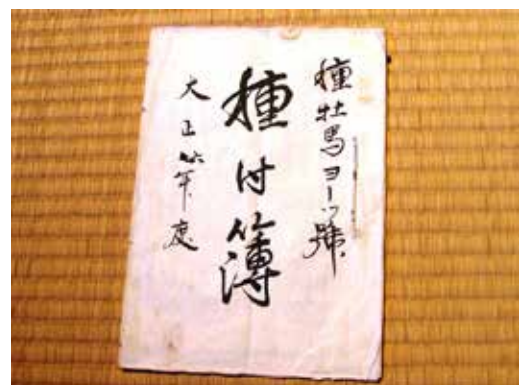 種牡馬ヨー號
種付簿
大正六年度